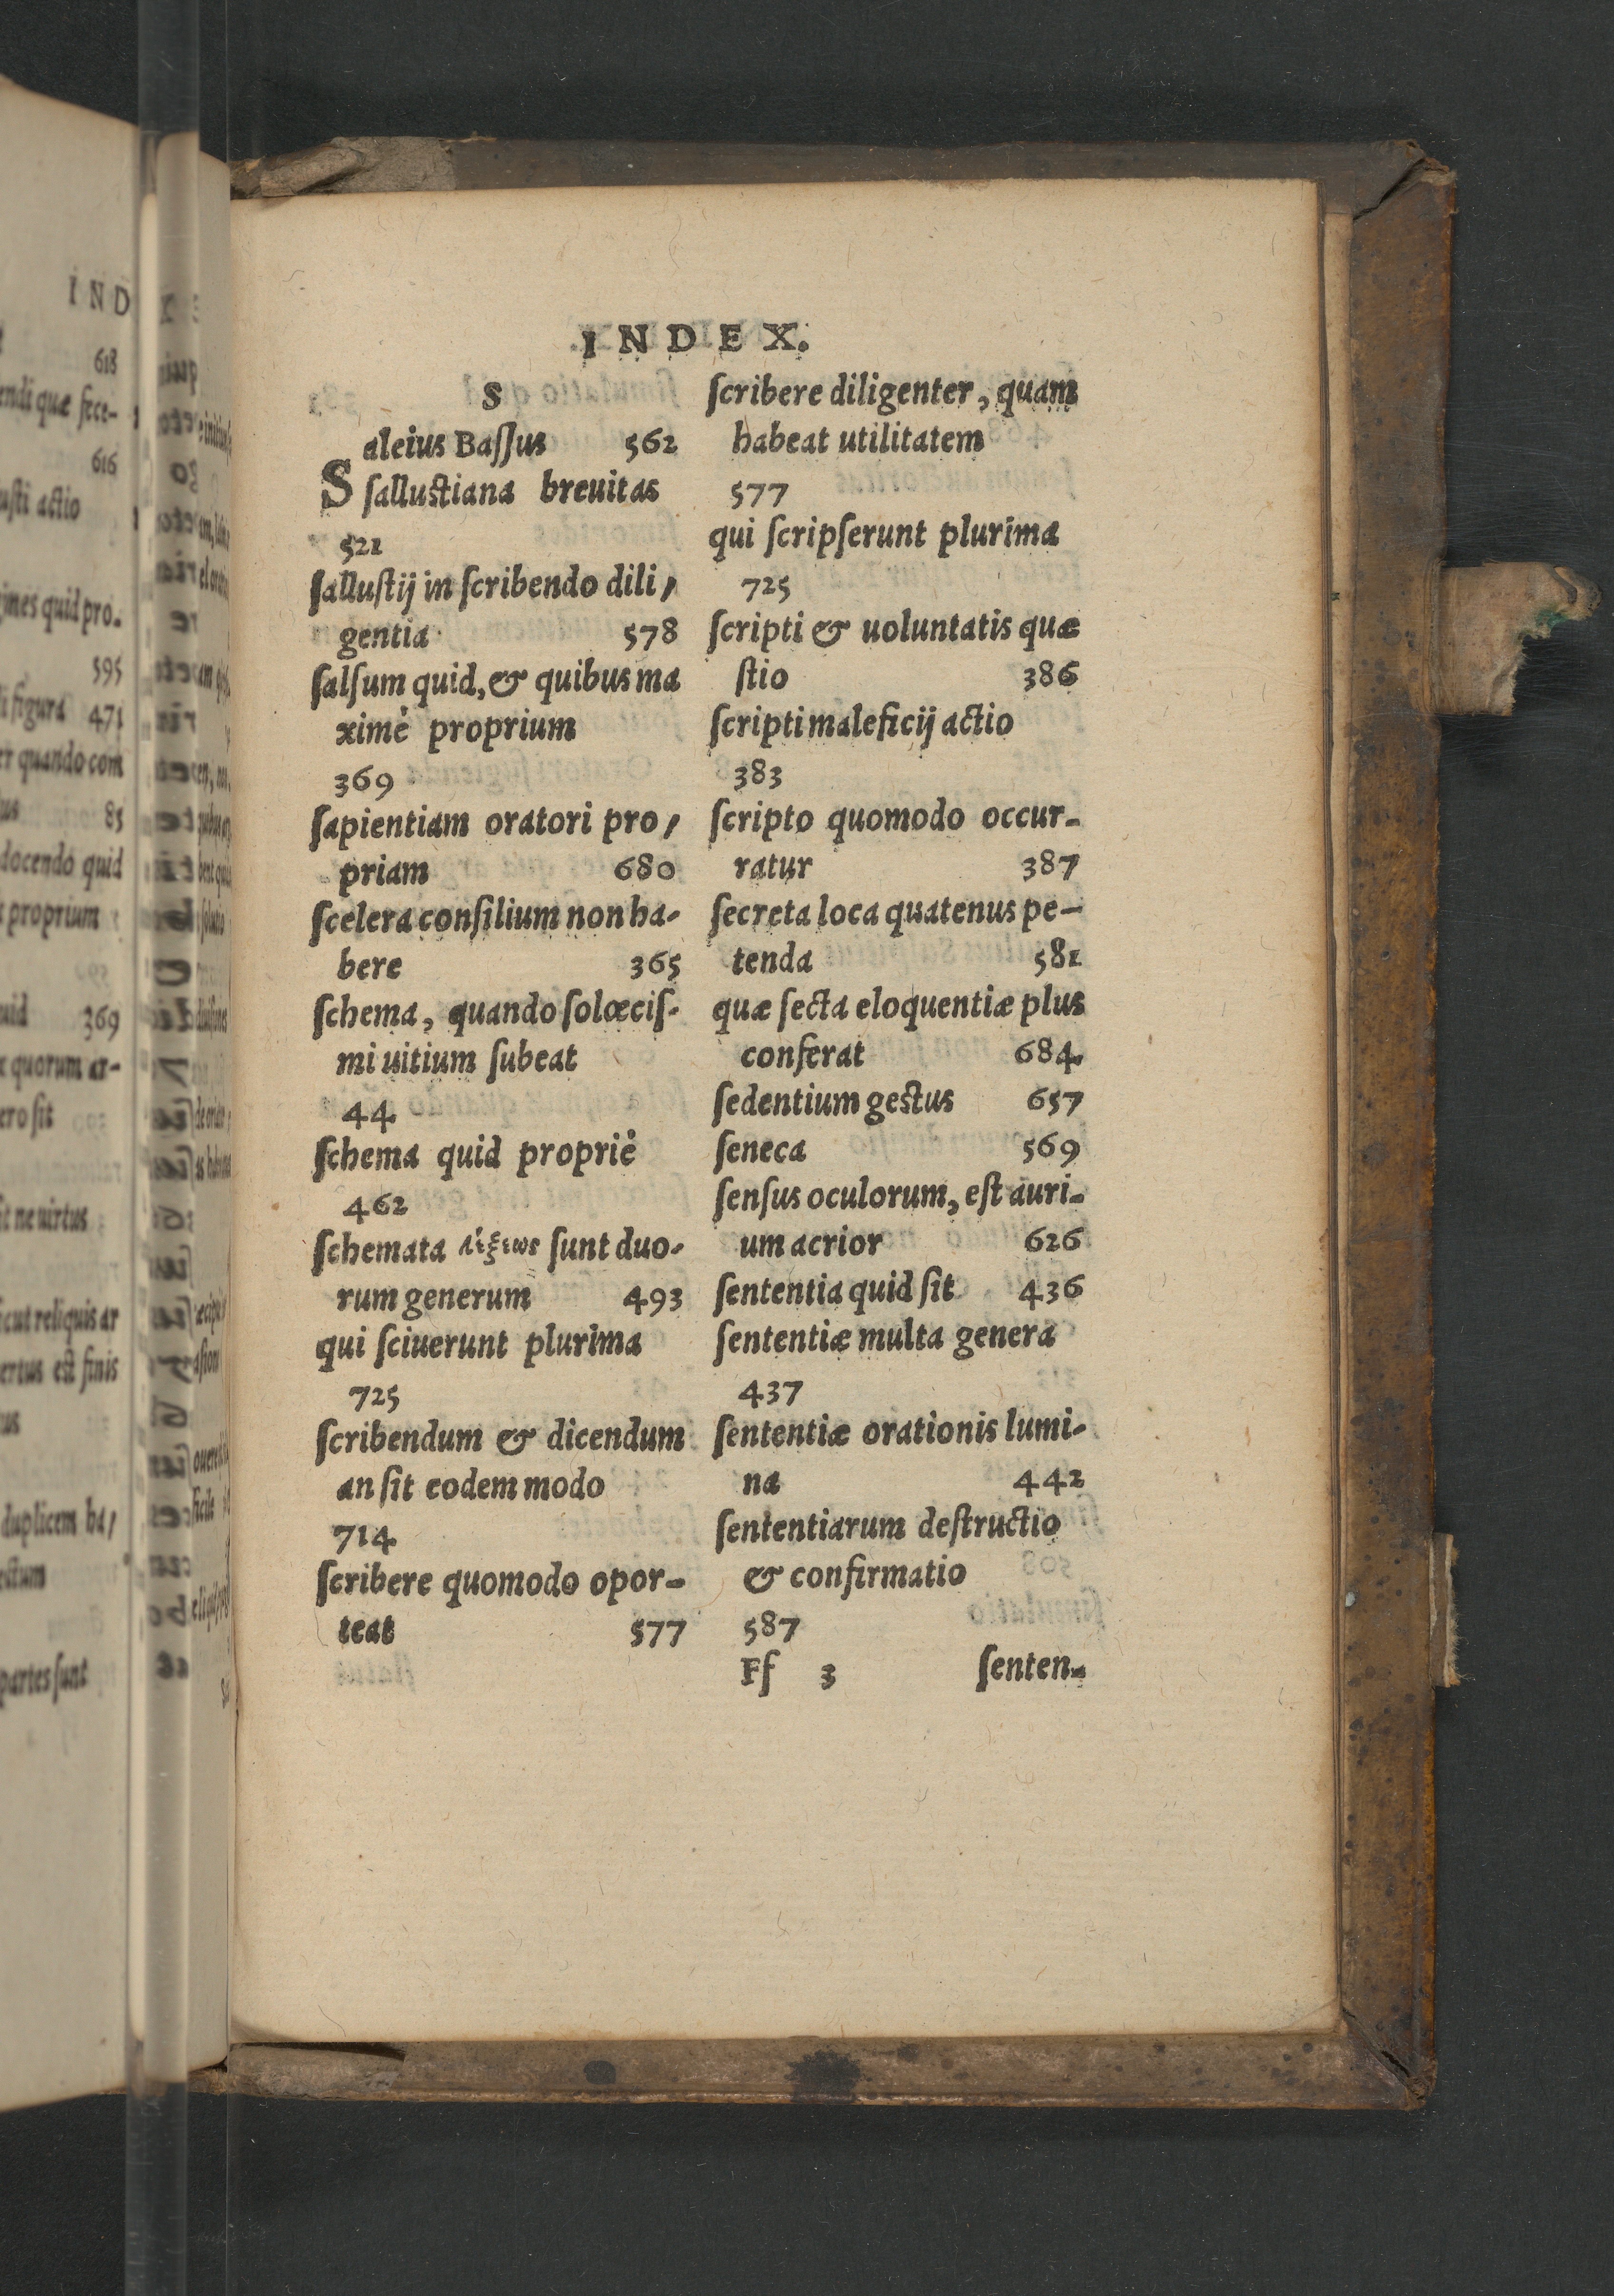 INDEX.
S
Saleius Baſſus 562
ſalluſtiana breuitas
521
ſalluſtij in ſcribendo dili,
gentia 578
ſalſum quid, & quibus ma
ximè proprium
369
ſapientiam oratori pro,
priam 680
ſcelera conſilium non ha-
bere 365
ſchema, quando ſolœciſ-
mi uitium ſubeat
44
ſchema quid propriè
462
ſchemata λέξεως ſunt duo-
rum generum 493
qui ſciuerunt plurima
725
ſcribendum & dicendum
an ſit eodem modo
714
ſcribere quomodo opor-
teat 577
ſcribere diligenter, quam
habeat utilitatem
577
qui ſcripſerunt plurima
725
ſcripti & uoluntatis quæ
ſtio 386
ſcripti maleficij actio
383
ſcripto quomodo occur-
ratur 387
ſecreta loca quatenus pe-
tenda 581
quæ ſecta eloquentiæ plus
conferat 684
ſedentium geſtus 657
ſeneca 569
ſenſus oculorum, eſt auri-
um acrior 626
ſententia quid ſit 436
ſententiæ multa genera
437
ſententiæ orationis lumi-
na 442
ſententiarum deſtructio
& confirmatio
587
Ff 3 ſenten-